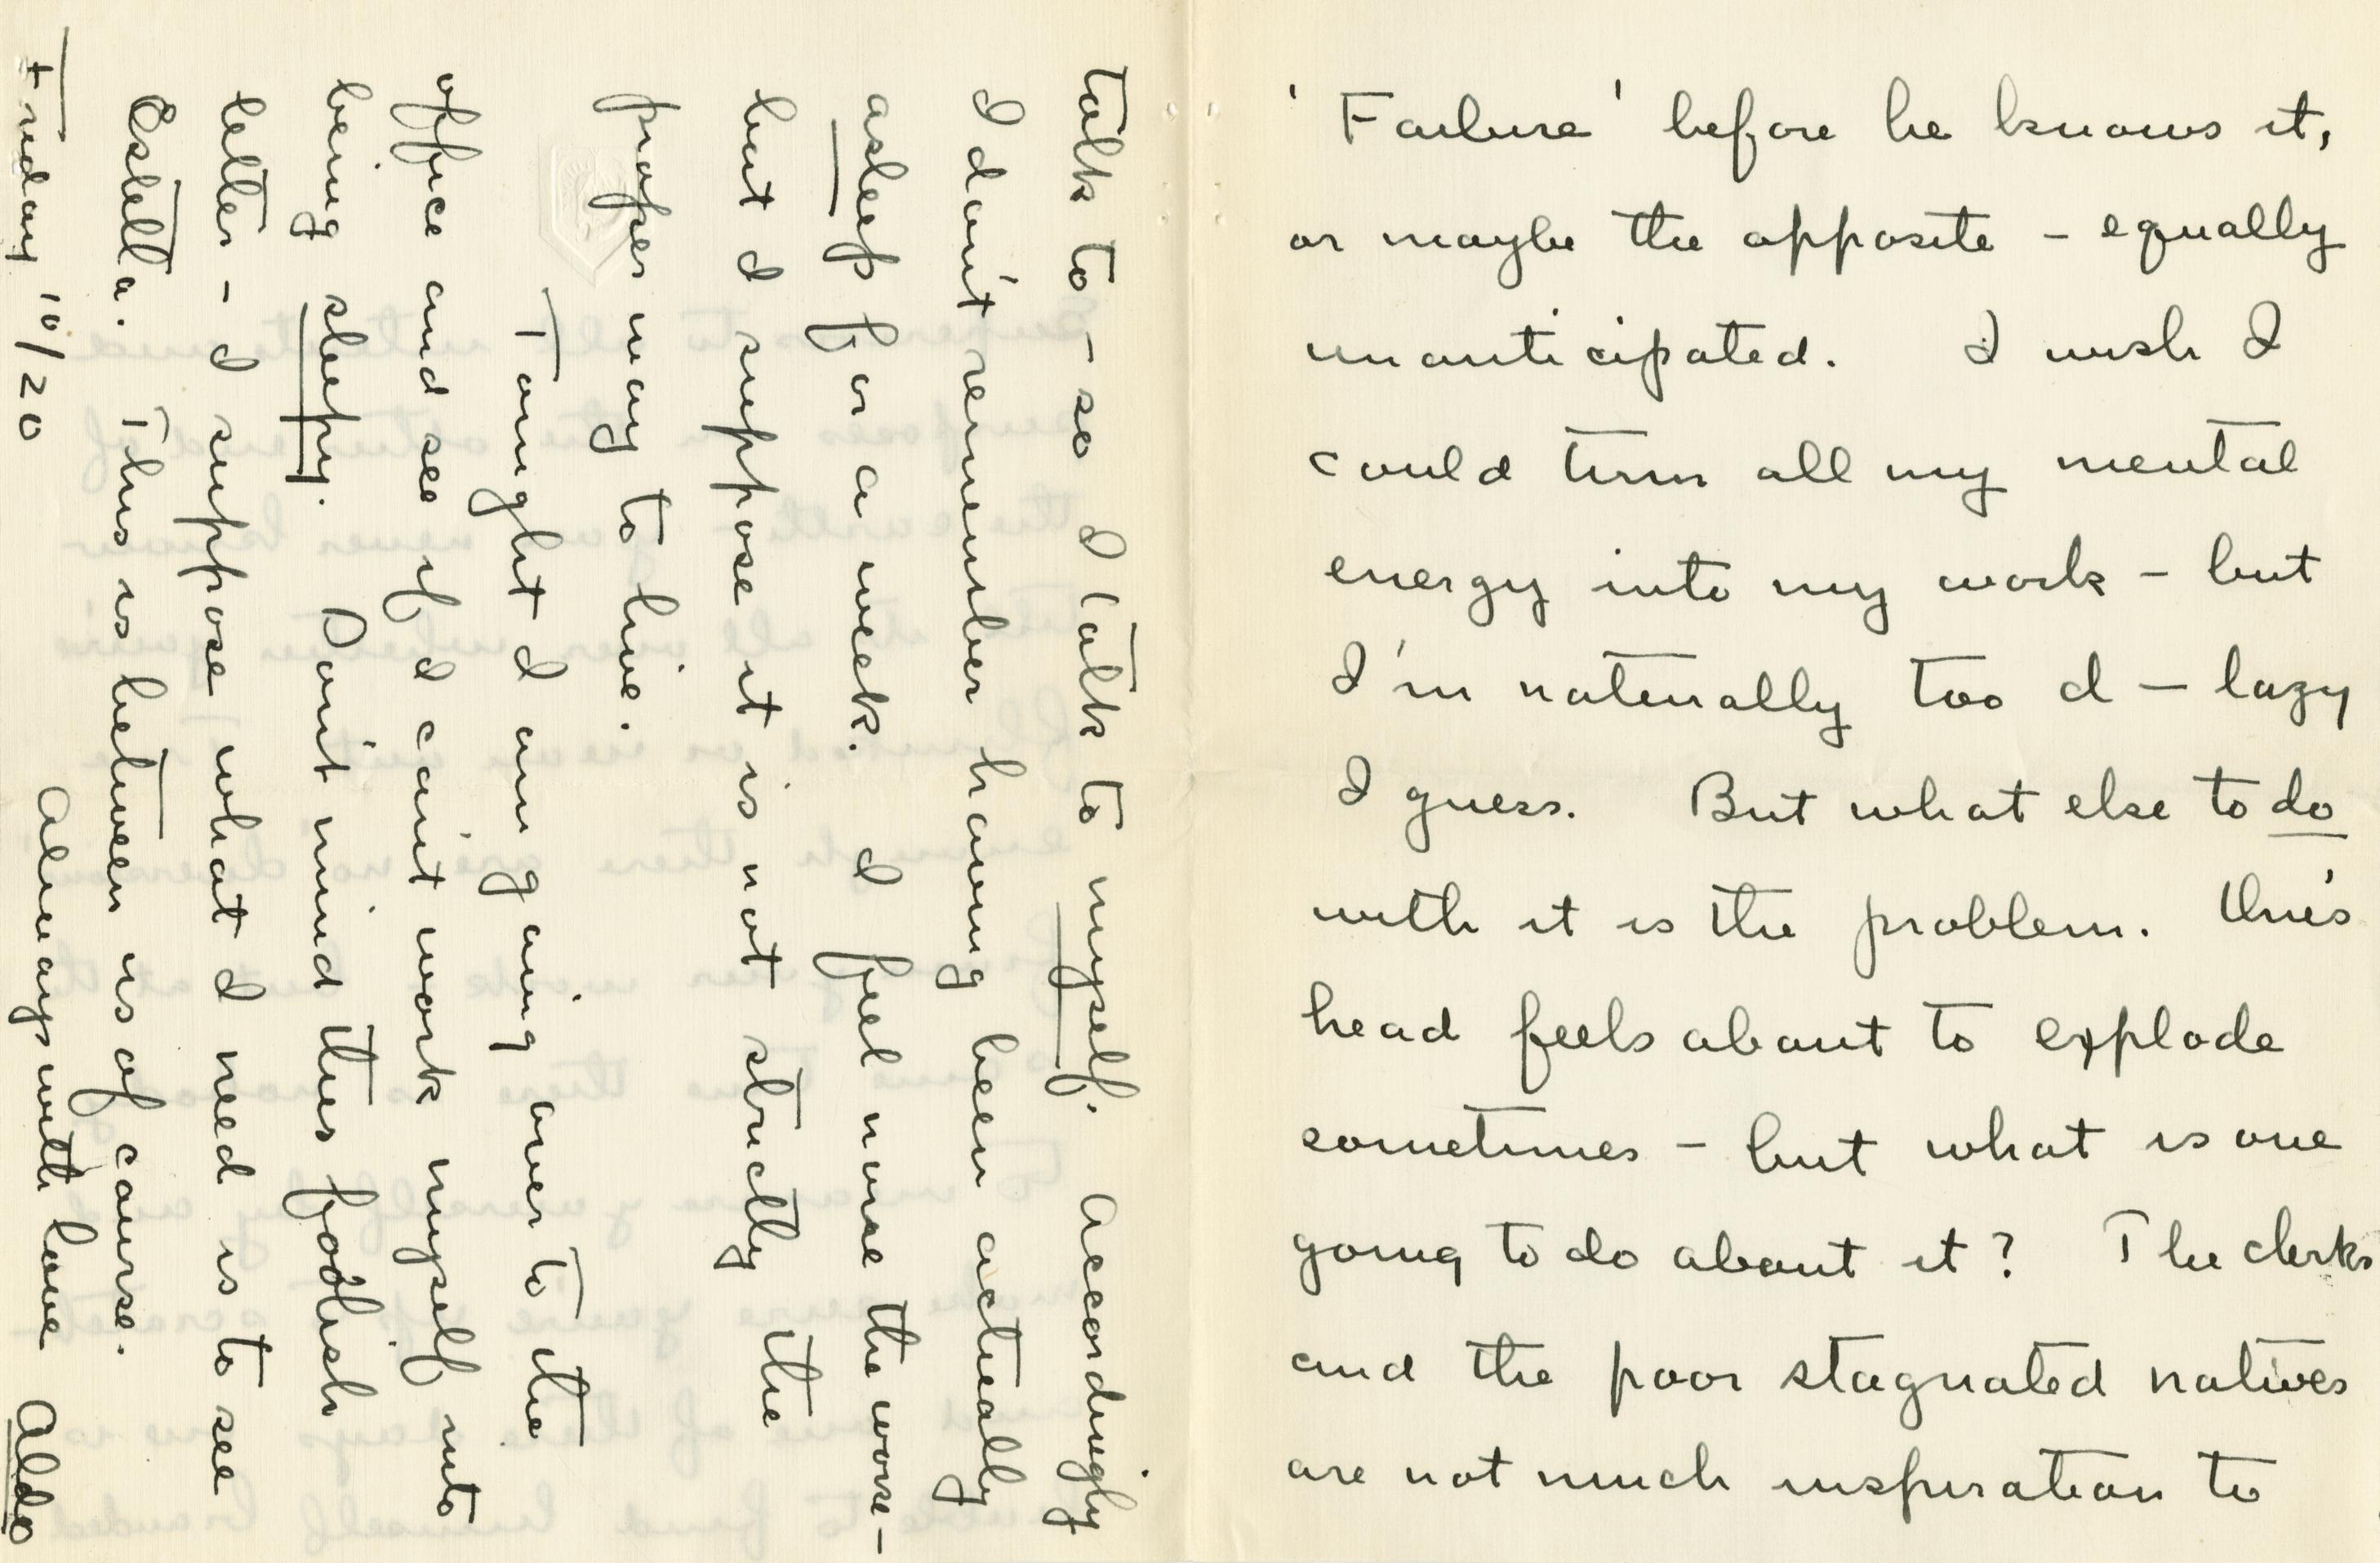 'Failure' before he knows it,
or maybe the opposite – equally
unanticipated. I wish I
could turn all my mental
energy into my work – but
I'm naturally too d— lazy
I guess. But what else to do
with it is the problem. This
head feels about to explode
sometimes – but what is one
going to do about it? The clerks
and the poor stagnated natives
are not much inspiration to
talk to – so I talk to myself. Accordingly
I don't remember having been actually
asleep for a week. I feel none the worse –
but I suppose it is not strictly the
proper way to live.
Tonight I am going over to the
office and see if I can't work myself into
being sleepy. Don't mind this foolish
letter – I suppose what I need is to see
Estella. This is between us of course.
Always with love Aldo
Friday 10/20